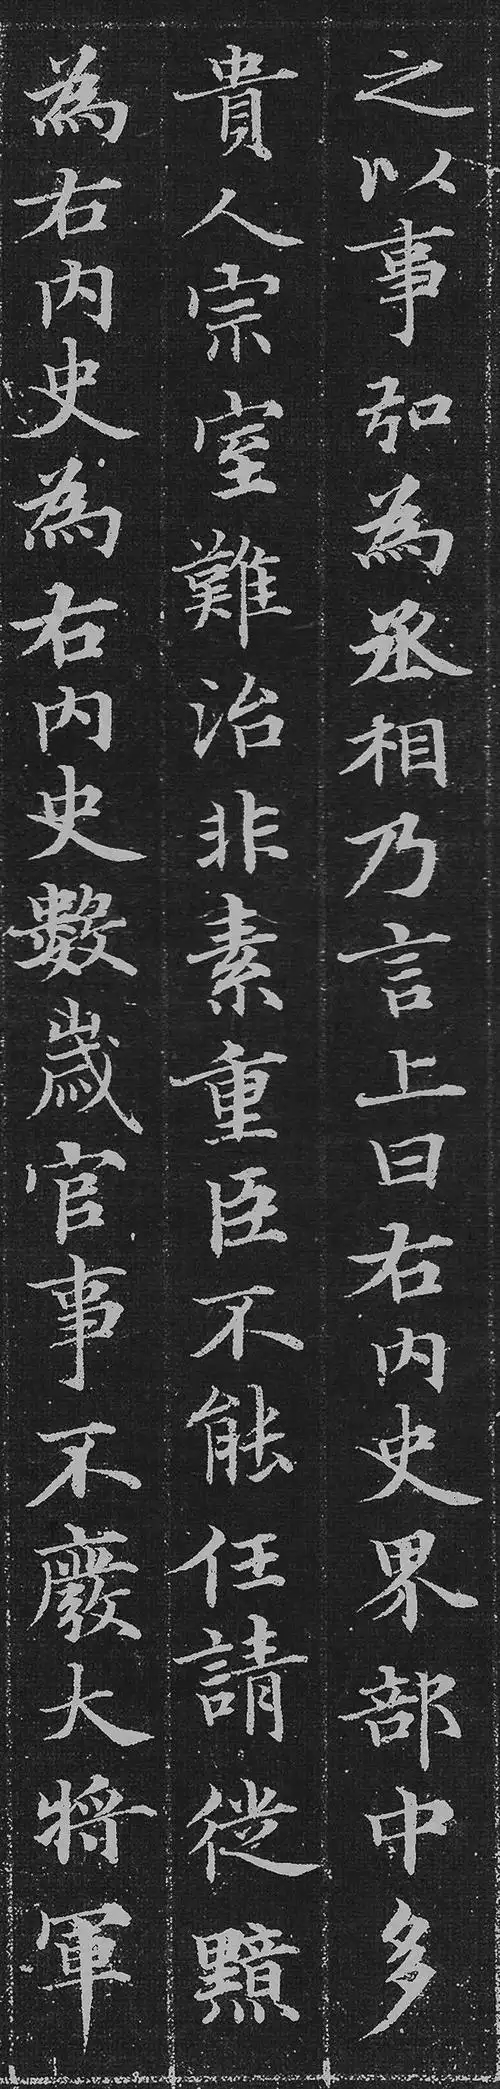 之以事弘為丞相乃言上曰右内史界部中多
貴人宗室難治非素重臣不能任請徙黯
為右内史為右内史數歲官事不廢大將軍